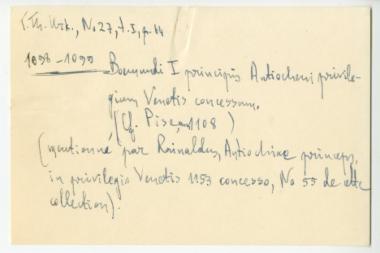 T. Th. Urk., No 27, t. I, p. 64
1098-1099 Boemundi I principis Antiocheni privile-
gium Venetis concessum.
(Cf. Pise, 1108)
(mentionné par Rainaldus, Antiochiae princeps,
in privilegio Venetis 1153 concesso, No 55 de cette
collection).